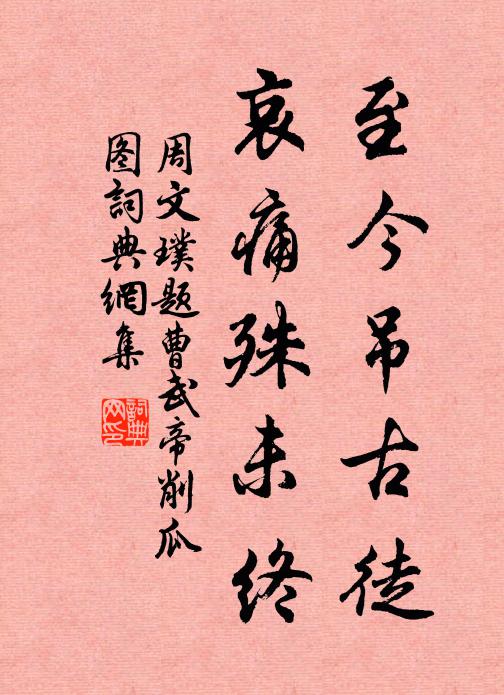 至今吊古徒
哀痛殊未终
周文璞题曹武帝削瓜
图詞典網集
詞典网印